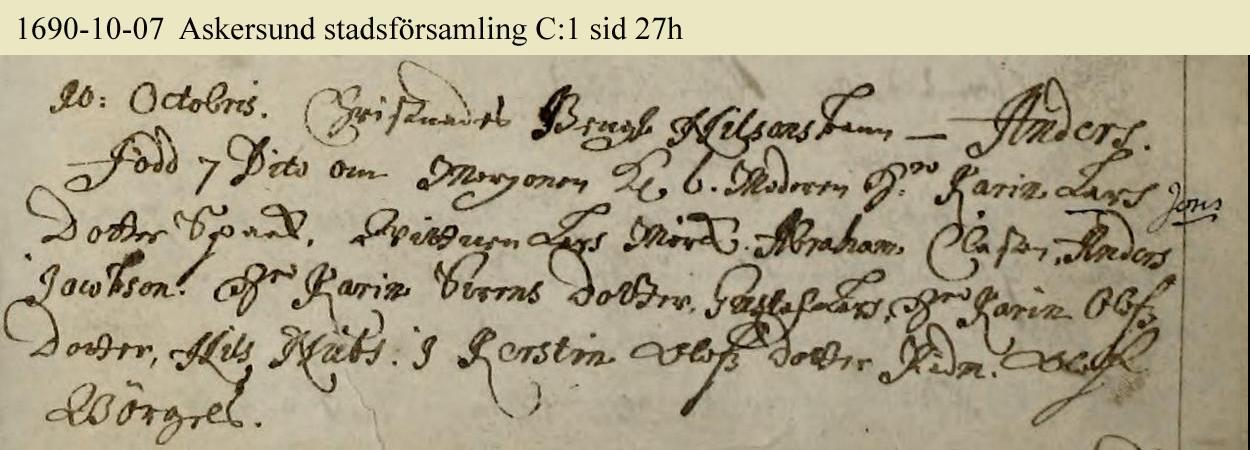 1690-10-07 Askersund stadsförsamling C:1 sid 27h
10: Octobris. Christnades Bengt Nilsons barn — Anders.
Född 7 Dito om Morgonen Kl. 6. Moderen H:ro Karin Lars
Jons
Dotter Spaak. Wittnen Lars Mörck. Abraham Clason, Anders
Jacobson. H:ro Karin Sörens Dotter, Lars, H:ro Karin Olofz
Dotter, Nils J Kerstin Olofz dotter Oloff
Wörgels.